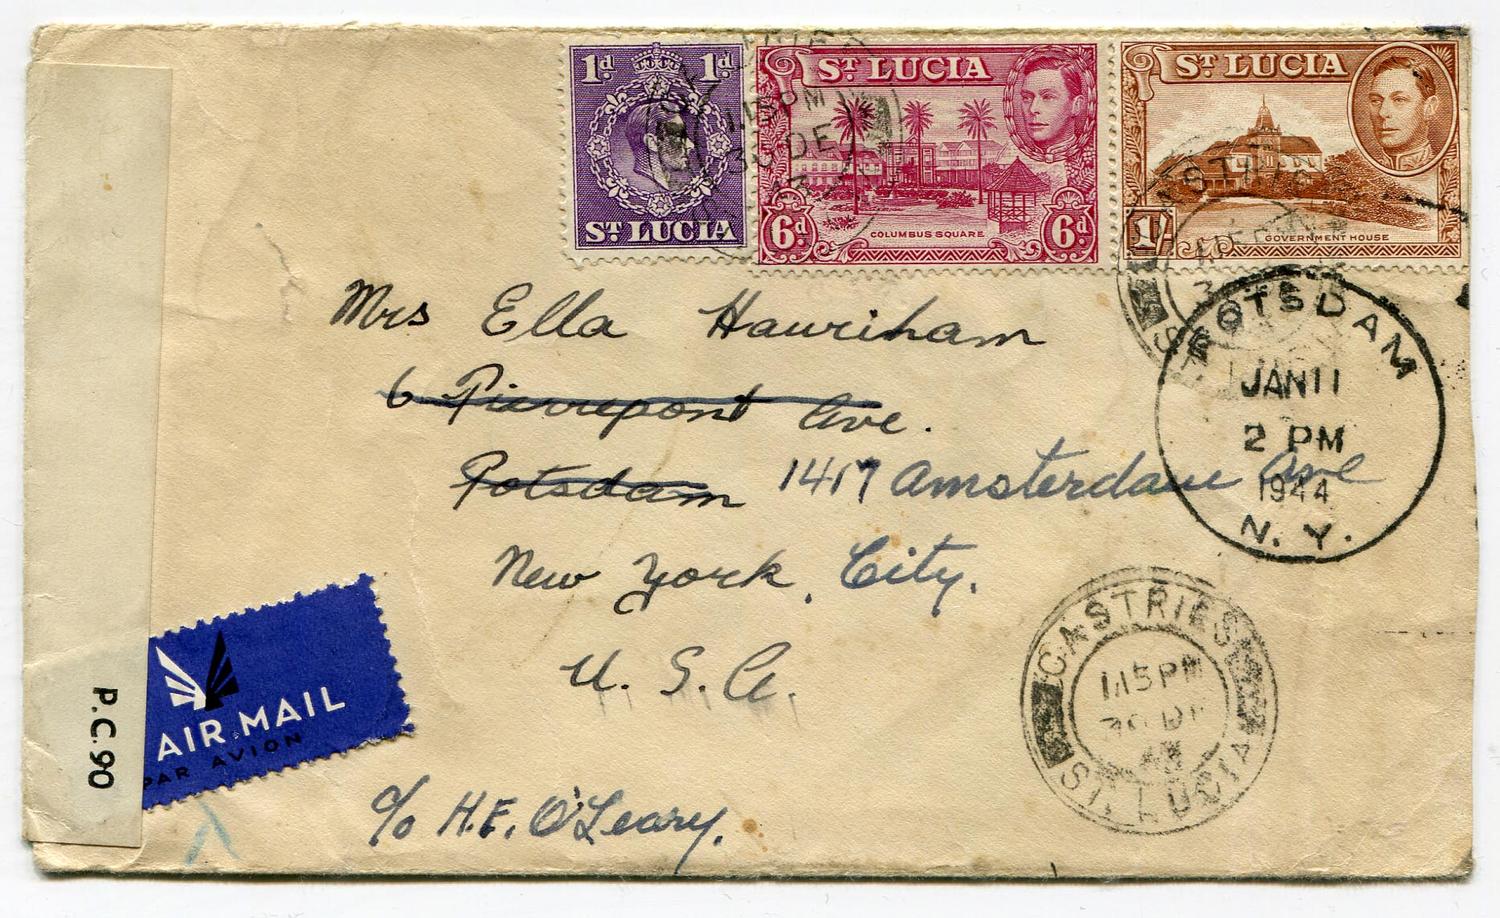 1d 1d
ST. LUCIA
ST. LUCIA
6d COLUMBUS SQUARE 6d
ST. LUCIA
1/- GOVERNMENT HOUSE
1.15PM
30 DE
43
POTSDAM
JAN 11
2 PM
1944
N. Y.
Mrs Ella Hauriham
6 Pierrepont Ave.
Potsdam 1417 Amsterdam Ave
New York, City.
U. S. A.
c/o H.F. O'Leary.
CASTRIES
1.15PM
30 DE
43
ST. LUCIA
AIR MAIL
PAR AVION
P.C.90